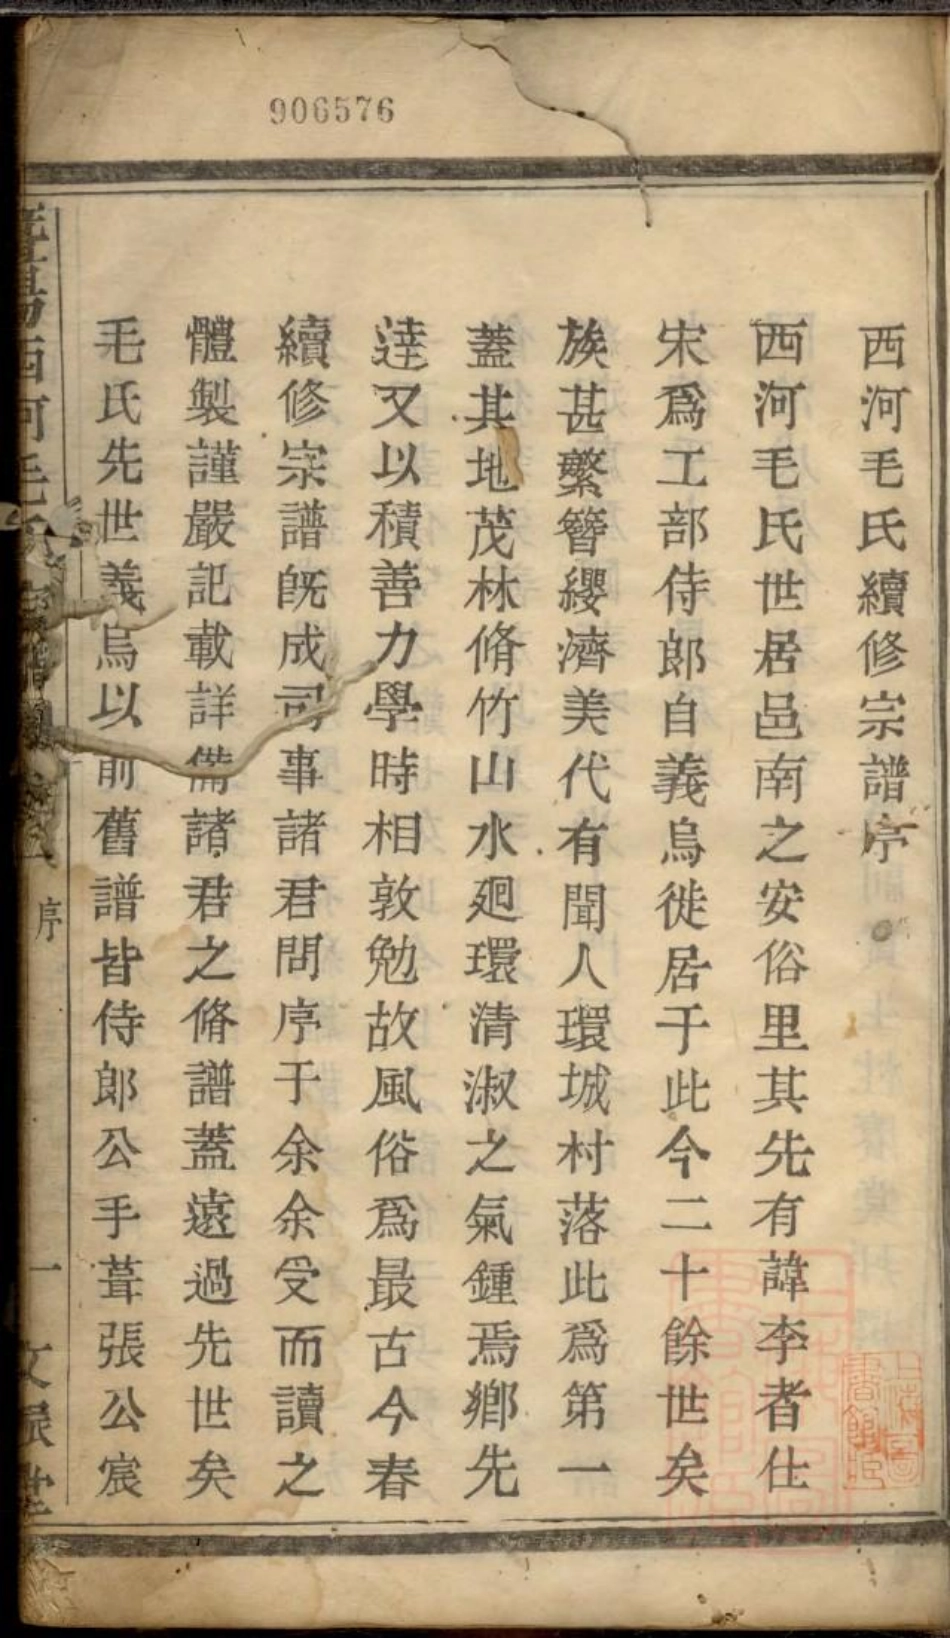 906576
西河毛氏續修宗譜序
西河毛氏世居邑南之安俗里其先有諱李者仕
宋爲工部侍郎自義烏徙居于此今二十餘世矣
族甚繁簪纓濟美代有聞人環城村落此爲第一
蓋其地茂林脩竹山水廻環清淑之氣鍾焉鄉先
達又以積善力學時相敦勉故風俗爲最古今春
續修宗譜旣成司事諸君問序于余余受而讀之
體製謹嚴記載詳備諸君之脩譜蓋遠過先世矣
毛氏先世義烏以前舊譜皆侍郎公手葺張公宸
西河毛
序
一